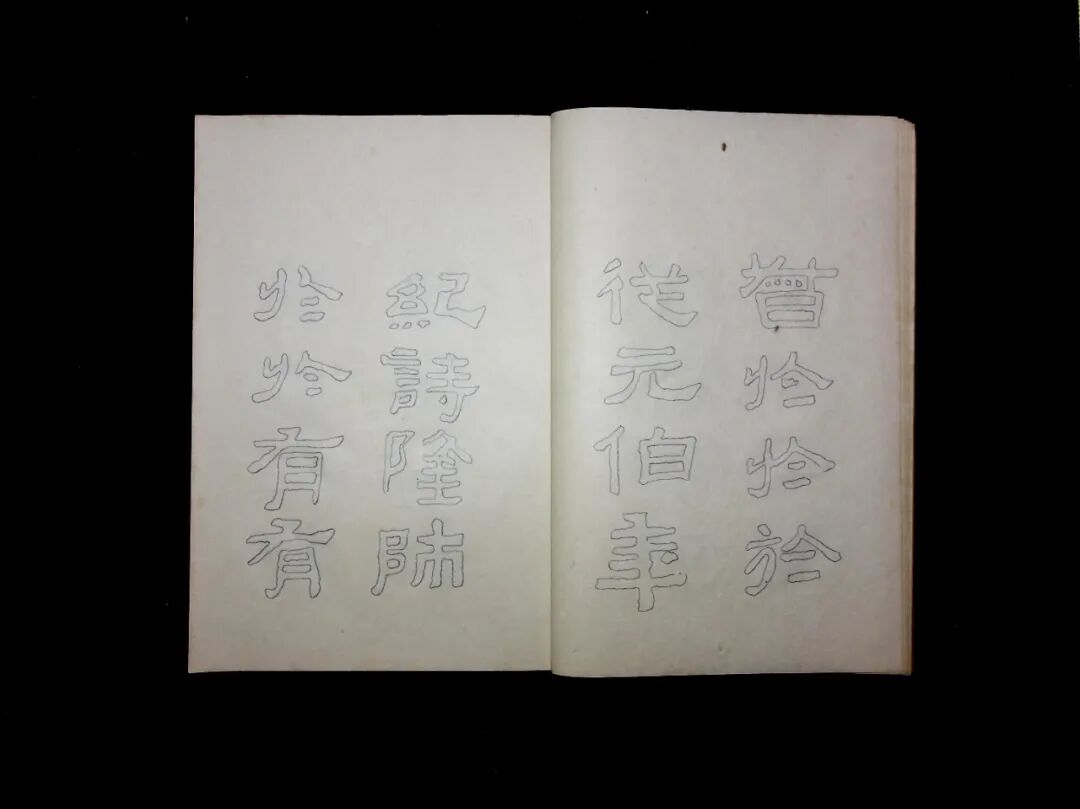 於於於
從元伯年
紀詩隆
於於有有